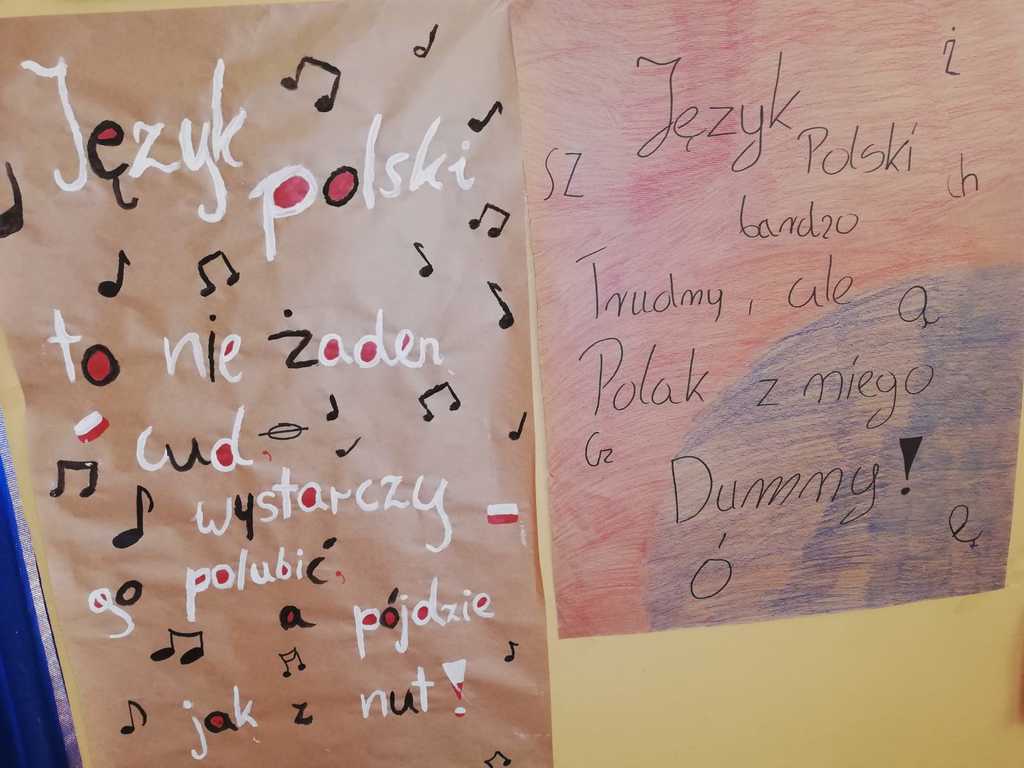 Język
polski
to nie żaden
cud,
wystarczy
go polubić,
a pójdzie
jak z nut!
ż
Język
Polski
SZ
ch
bardzo
Trudny, ale
Ą
Polak z niego
Cz
Dumny!
Ę
Ó